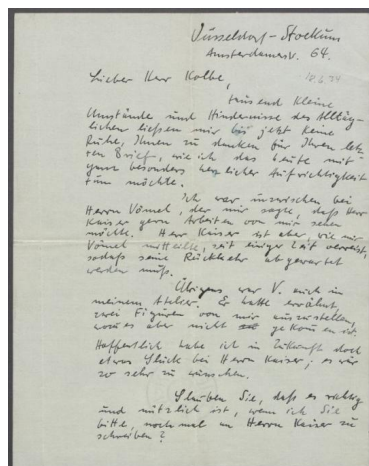 Düsseldorf-Stockum
Amsterdamerstr. 64.
10.6.34
Lieber Herr Kolbe,
tausend kleine
Umstände und Hindernisse des Alltäg-
lichen ließen mir bis jetzt keine
Ruhe, Ihnen zu danken für Ihren letz-
ten Brief, wie ich das heute mit
ganz besonders herzlicher Aufrichtigkeit
tun möchte.
Ich war inzwischen bei
Herrn Vömel, der mir sagte, daß Herr
Kaiser gern Arbeiten von mir sehen
möchte. Herr Kaiser ist aber, wie mir
Vömel mitteilte, seit einiger Zeit verreist,
sodaß seine Rückkehr abgewartet
werden muß.
Übrigens war V. auch in
meinem Atelier. Er hatte erwähnt
zwei Figuren von mir auszustellen,
wozu es aber nicht gekommen ist.
Hoffentlich habe ich in Zukunft doch
etwas Glück bei Herrn Kaiser; es wär
so sehr zu wünschen.
Glauben Sie, daß es richtig
und nützlich ist, wenn ich Sie
bitte, noch mal an Herrn Kaiser zu
schreiben?